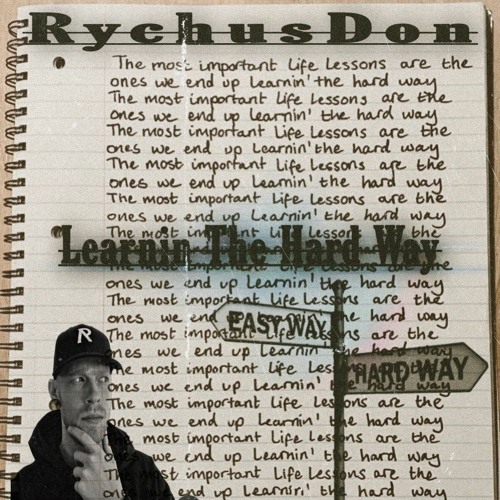 RychusDon
The most important life lessons are the
ones we end up learnin' the hard way
The most important life lessons are the
ones we end up learnin' the hard way
The most important life lessons are the
ones we end up learnin' the hard way
The most important life lessons are the
ones we end up learnin' the hard way
The most important life lessons are the
ones we end up learnin' the hard way
The most important life the
Learnin The Hard Way
The most important life lessons are the
ones we end up learnin' the hard way
The most important life lessons are the
ones we end up learnin' the hard way
EASY WAY
The most important life lessons are the
ones we end up learnin' the hard way
HARD WAY
The most important life lessons are the
ones we end up learnin' the hard way
R
The most important life lessons are the
ones we end up learnin' the hard way
The most important life lessons are the
ones we end up learnin' the hard way
The most important life lessons are the
ones we end up learnin' the hard way